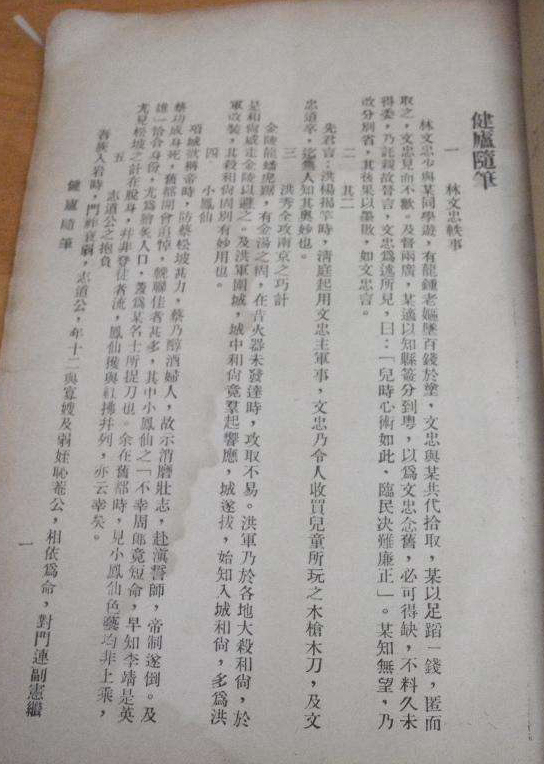 健廬隨筆
一　林文忠軼事
林文忠少與某同學遊，有龍鍾老嫗墜百錢於塗，文忠與某共代拾取，某以足蹈一錢，匿而
取之，文忠見而不歡。及督兩廣，某適以知縣簽分到粵，以為文忠念舊，必可得缺，不料久未
得委，乃託親故晉言，文忠為述所見，曰：「兒時心術如此，臨民决難廉正」。某知無望，乃
改分別省，其後果以墨敗，如文忠言。
二　其二
先君言：洪楊揭竿時，清庭起用文忠主軍事，文忠乃令人收買兒童所玩之木槍木刀，及文
忠道卒，迄無人知其奧妙也。
三　洪秀全攻南京之巧計
金陵龍蟠虎踞，有金湯之稱，在昔火器未發達時，攻取不易。洪軍乃於各地大殺和尙，於
是和尙咸走金陵以避之。及洪軍圍城，城中和尙竟羣起響應，城遂拔，始知入城和尙，多為洪
軍改裝，其殺和尙固別有妙用也。
四　小鳳仙
項城欲稱帝時，防蔡松坡甚力，蔡乃醇酒婦人，故示消磨壯志，赴滇誓師，帝制遂倒。及
蔡功成身死，舊都開會追悼，輓聯佳者甚多，其中小鳳仙之「不幸周郎竟短命，早知李靖是英
雄」恰合身份，尤為膾炙人口，蓋為某名士所捉刀也。余在舊都時，見小鳳仙色藝均非上乘，
尤見松坡之計在脫身，幷非登徒者流，鳳仙獲與紅拂幷列，亦云幸矣。
五　志道公之抱負
吾族入岩時，門祚衰弱，志道公，年十二與寡嫂及弱姪恥菴公，相依為命，對門連副憲繼
健廬隨筆
一